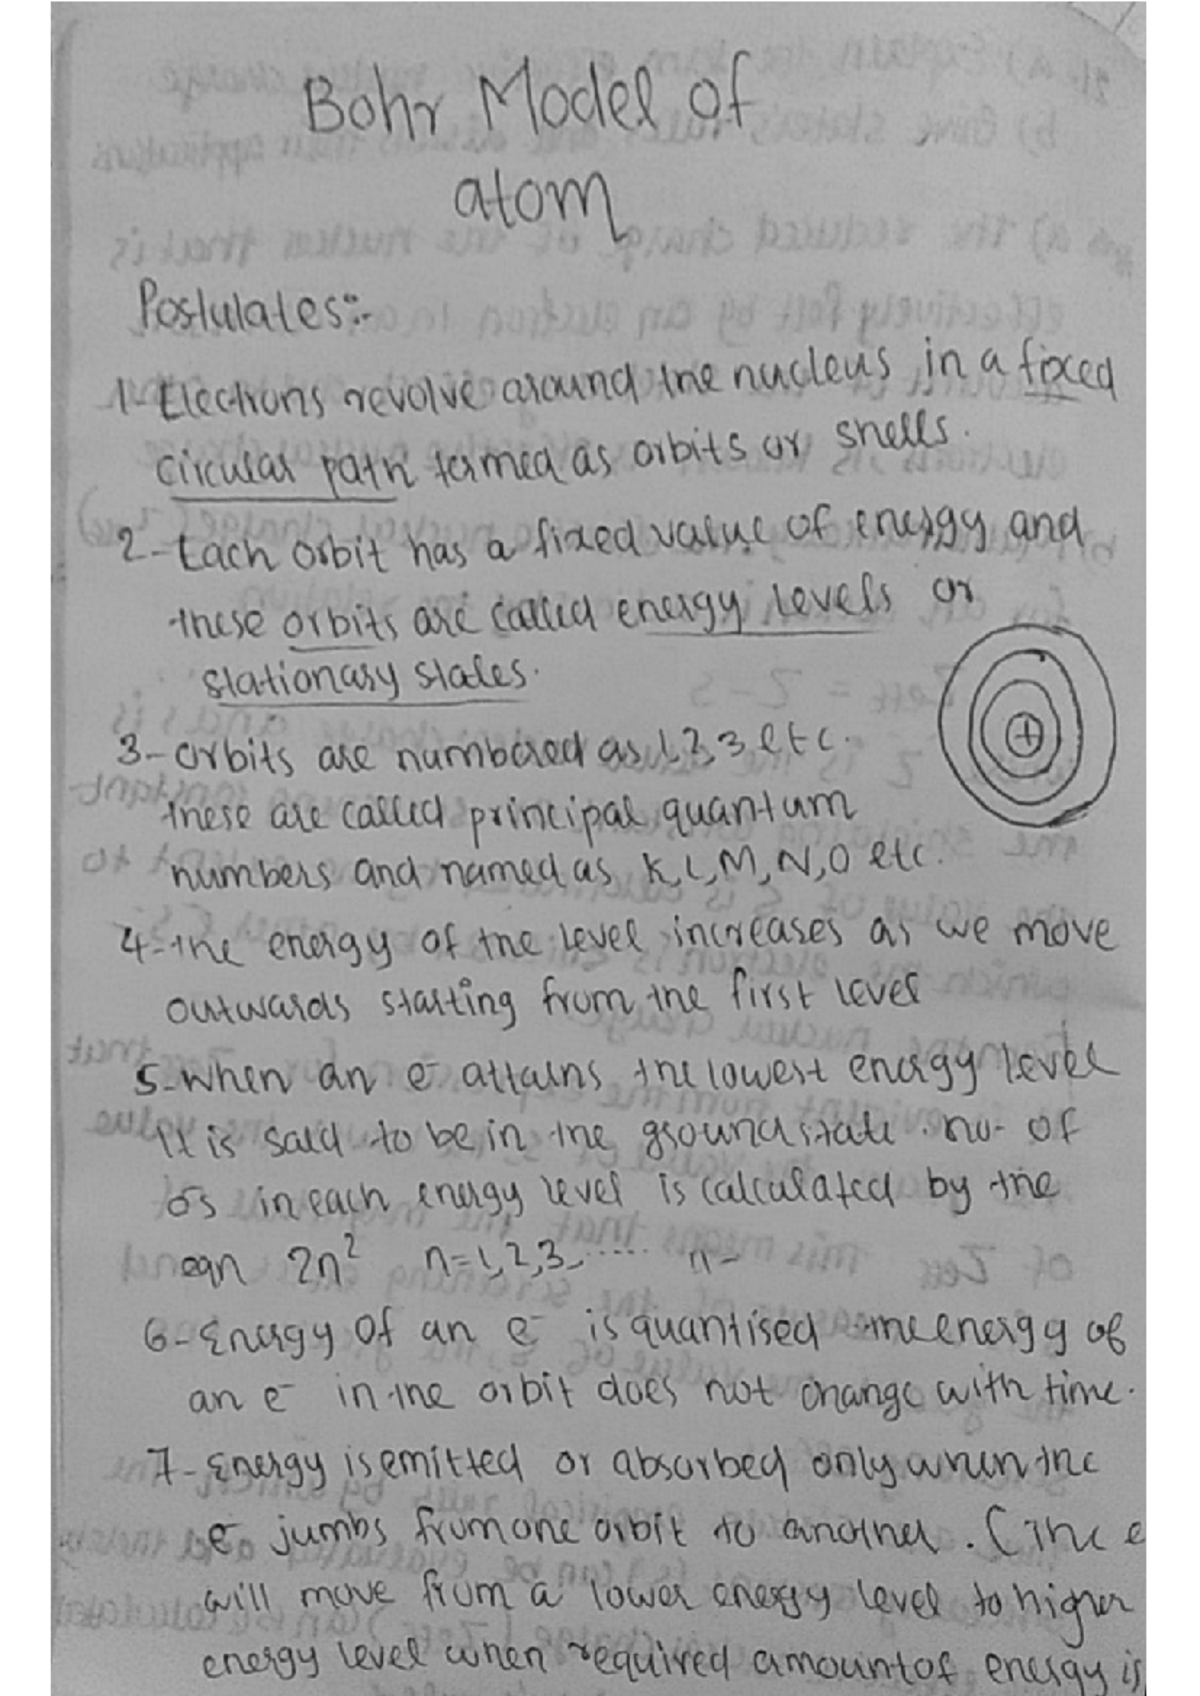 Bohr Model of
atom
Postulates:-
1- Electrons revolve around the nucleus in a fixed
circular path termed as orbits or shells.
2- Each orbit has a fixed value of energy and
these orbits are called energy levels or
stationary states.
3- orbits are numbered as 1,2,3 etc.
these are called principal quantum
numbers and named as K,L,M,N,O etc.
+
4- the energy of the level increases as we move
outwards starting from the first level
5- when an e⁻ attains the lowest energy level
it is said to be in the ground state. no. of
e⁻s in each energy level is calculated by the
eqn 2n² n=1,2,3,...... n-
6- Energy of an e⁻ is quantised the energy of
an e⁻ in the orbit does not change with time.
7- Energy is emitted or absorbed only when the
e⁻ jumbs from one orbit to another. (The e
will move from a lower energy level to higher
energy level when required amount of energy is